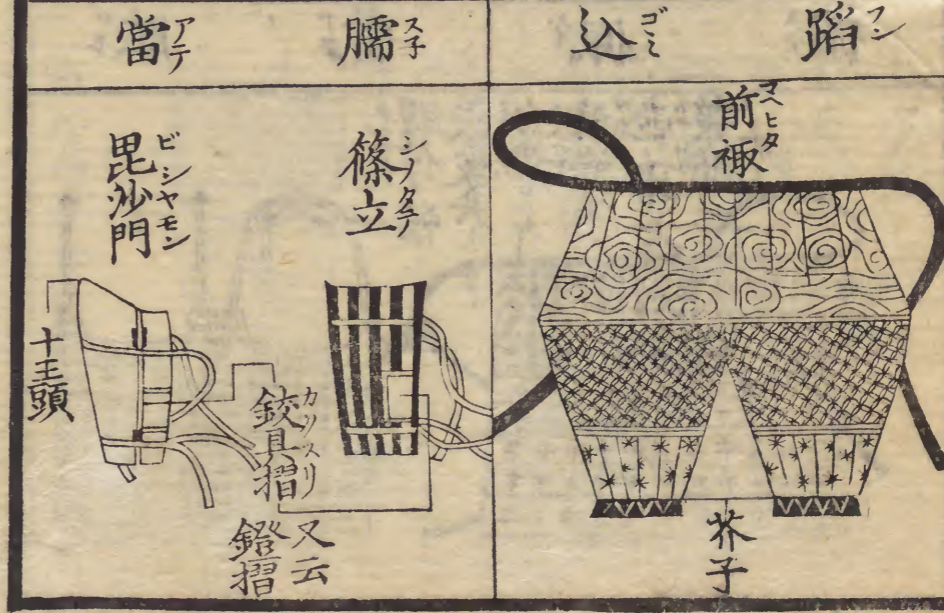 蹈込
フンゴミ
前
マヘヒタ
芥子
臑當
ス子アテ
篠立
シノタテ
毘沙門
ビシヤモン
十王頭
鉸具摺
カリスリ
又云
鐙摺